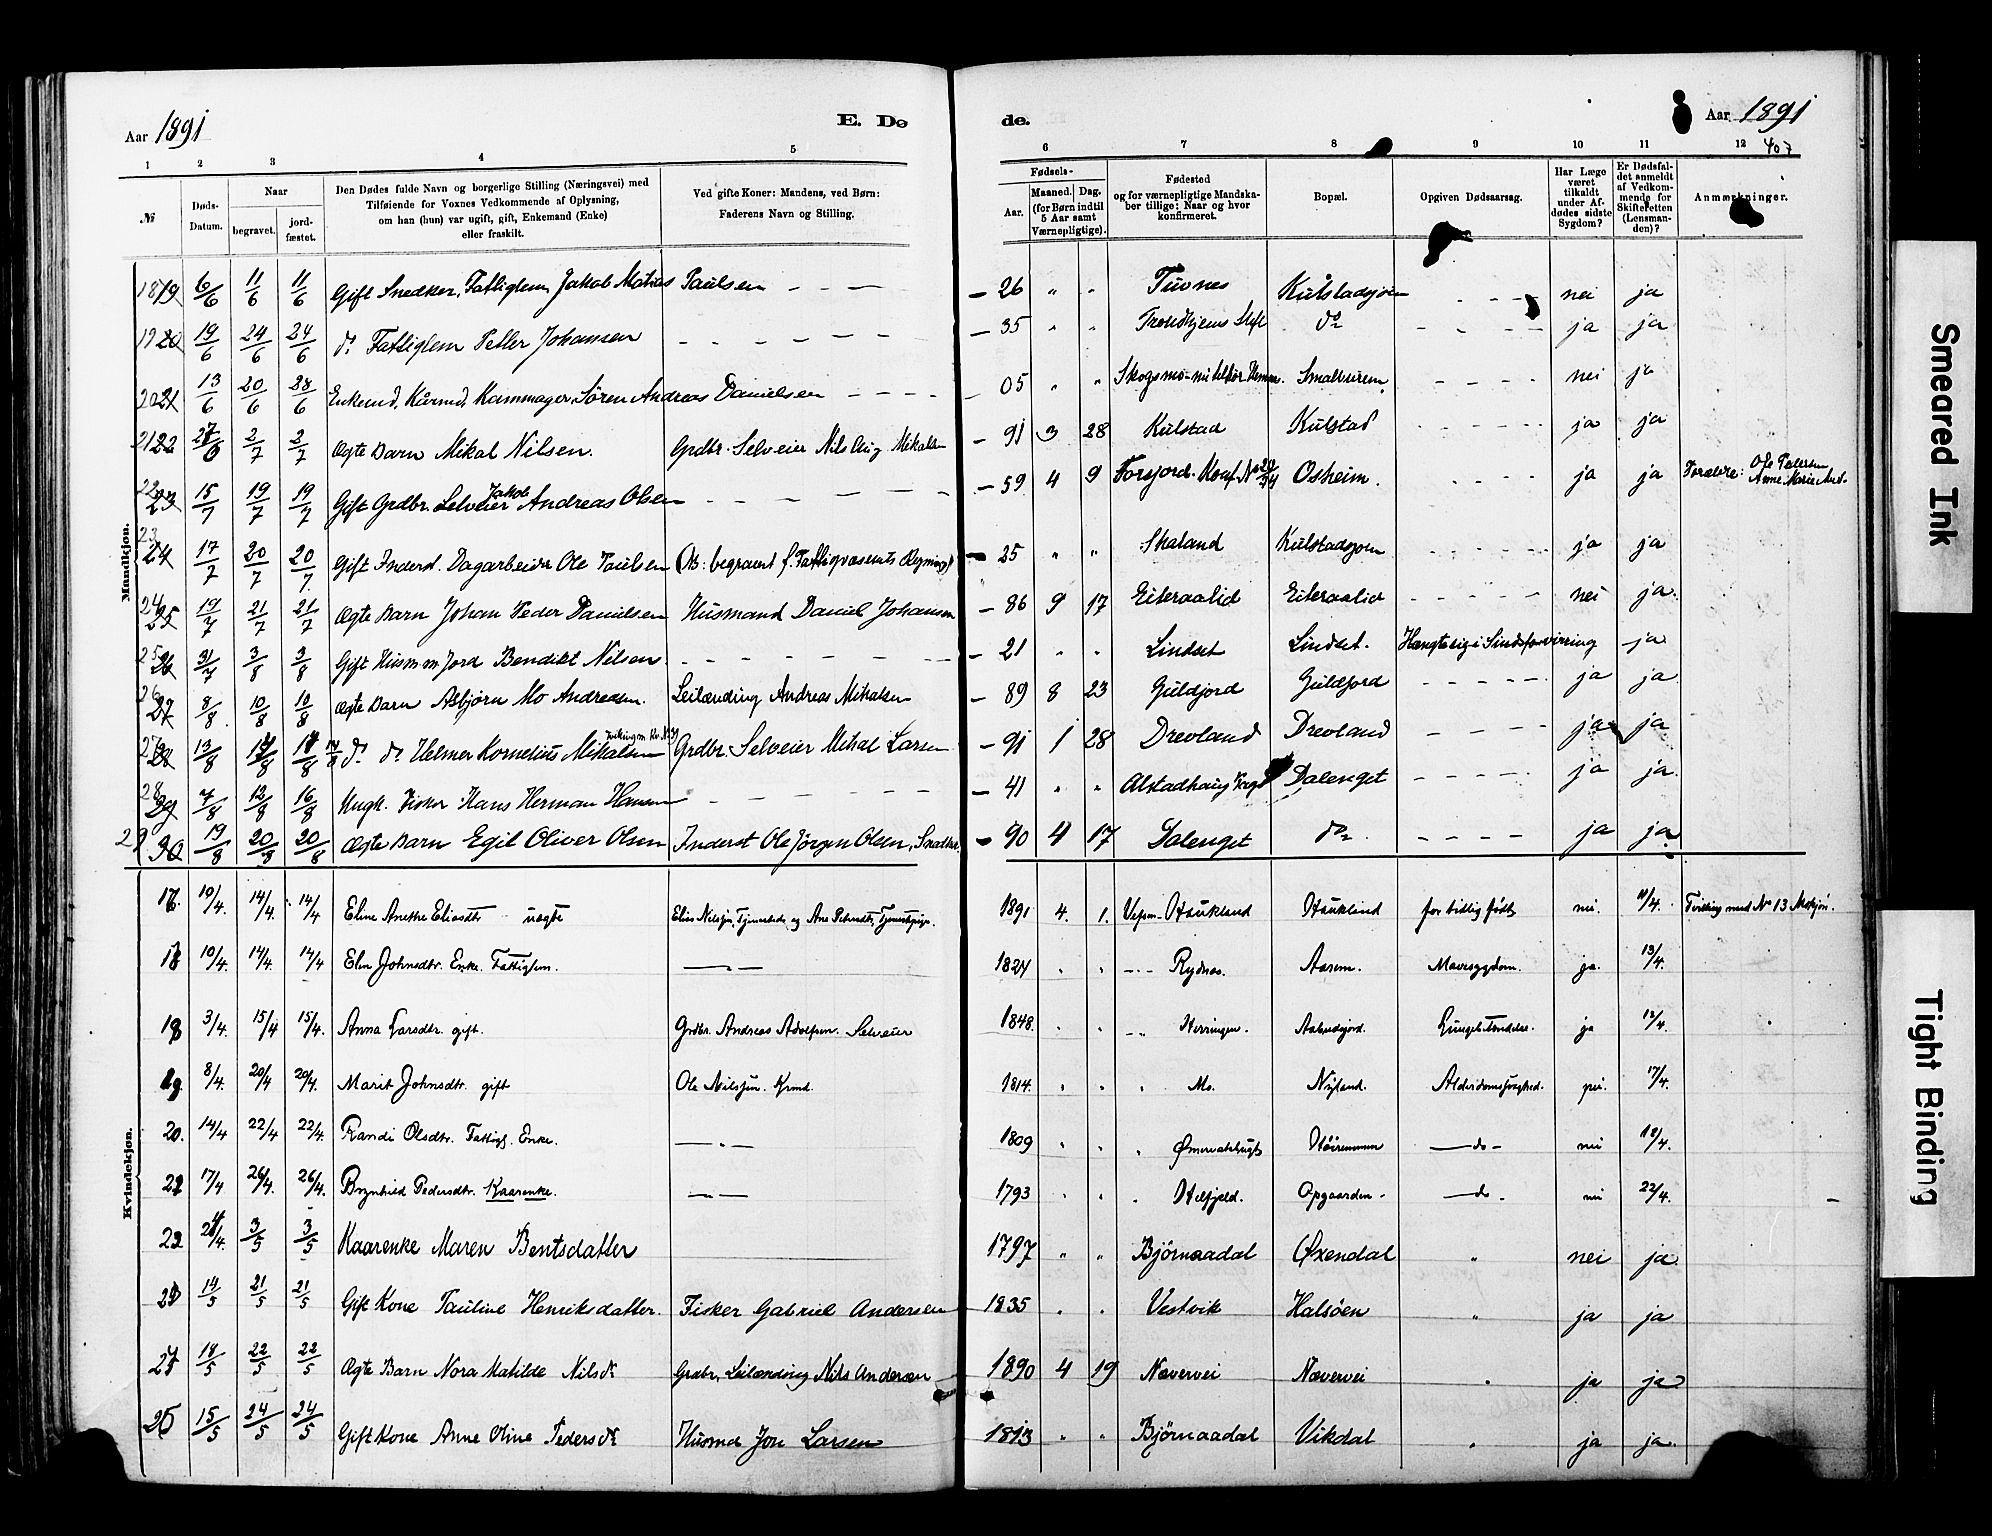 Aar 1891
E. Dø
de.
Aar 1891
407
1 2 3 4 5 6 7 8 9 10 11 12
№
Døds-Datum.
Naar
begravet.
jord-fæstet.
Den Dødes fulde Navn og borgerlige Stilling (Næringsvei) med
Tilføiende for Voxnes Vedkommende af Oplysning,
om han (hun) var ugift, gift, Enkemand (Enke)
eller fraskilt.
Ved gifte Koner: Mandens, ved Børn:
Faderens Navn og Stilling.
Fødsels-
Aar.
Maaned. Dag.
(for Børn indtil
5 Aar samt
Værnepligtige).
Fødested
og for værnepligtige Mandska-
ber tillige: Naar og hvor
konfirmeret.
Bopæl.
Opgiven Dødsaarsag.
Har Læge
været
tilkaldt
under Af-
dødes sidste
Sygdom?
Er Dødsfal-
det anmeldt
af Vedkom-
mende for
Skifteretten
(Lensman-
den)?
Anmærkninger.
Mandkjøn.
18 19 6/6 11/6 11/6 Gift Snedker, Fattiglem Jakob Matias Paulsen - - - - 26 " " Tuvnes Kulstadsjøen - - - nei ja
19 20 19/6 24/6 24/6 do Fattiglem Petter Johansen - - - - - 35 " " Trondhjems Stift do - - - - ja ja
20 21 13/6 20/6 28/6 Enkemd. Kårmd. Kammager Sören Andreas Danielsen - - - - - 05 " " Smalveren - - - - nei ja
21 22 2/7 2/7 Ægte Barn Mikal Nilsen. Grdbr. Selveier Nils Aug Mikalsen - 91 3 28 Kulstad Kulstad - - - - ja ja
22 23 15/7 19/7 19/7 Gift Grdbr. Selveier Jakob Andreas Olsen - - - - - 59 4 9 Forsjord. Konf. Osheim. ja ja Forældre: Ole Petersen Anne Marie And.
23 24 17/7 20/7 20/7 Gift Inderst. Dagarbeider Ole Paulsen (Ob: begravet f. Fattigvæsenets Regning) - 25 " " Skaland Kulstadsjøen - - - - ja ja
24 25 19/7 21/7 21/7 Ægte Barn Johan Peder Danielsen Husmand Daniel Johansen - 86 9 17 Eiteraalid Eiteraalid - - - - nei ja
25 26 31/7 3/8 3/8 Gift Husm m Jord Bendikt Nilsen - - - - - 21 " " Lindset Lindset. Hængte sig i Sindsforvirring ja
26 27 8/8 10/8 10/8 Ægte Barn Asbjørn Mo Andreasen. Leilænding Andreas Mikalsen - 89 8 23 Guldjord Guldfjord - - - - ja ja
27 28 13/8 14/8 do do Helmer Kornelius Mikalsen Grdbr. Selveier Mikal Larsen - 91 1 28 Drevland Drevland - - - - ja ja
28 29 7/8 12/8 16/8 Ungk. Fisker Hans Herman Hansen - - - - - 41 " " Alstadhaug Dalenget - - - - ja ja
29 30 19/8 20/8 20/8 Ægte Barn Egil Oliver Olsen Inderst Ole Jörgen Olsen, - 90 4 17 Dalenget do - - - - ja ja
Kvindekjøn.
16. 10/4. 14/4. 14/4 Eline Anethe Eliasdtr uægte Elias Nilssøn, og Ane 1891 4. 1. Vefsen - Haukland Haukland for tidlig født nei. 11/4. Tvilling med No 13 Mkjön.
17 10/4. 14/4. 14/4 Elen Johnsdtr. Enke. Fattiglem. — " — 1824 " " - " - Rydnos. Aarem. Mavesygdom. ja. 13/4.
18 3/4. 15/4 15/4. Anna Larsdtr. gift. Grdbr. Andreas Adolfsen. Selveier 1848. " " - " Herringen. Lungebetændelse. ja 12/4.
19 8/4. 20/4 20/4. Marit Johnsdtr. gift Ole Nilssøn. Krmd. 1814. " " " Mo. Nyland. Alderdomssvaghed. nei. 17/4.
20. 14/4 22/4 22/4. Randi Olsdtr. Fattigl. Enke. — " — 1809 " " " — do — nei 18/4.
21 17/4 26/4. 26/4. Brynhild Pedersdtr. Kaarenke. — " — 1793 " " " Hilfjeld. Opgaarden - — do - nei 22/4.
22 /4. 3/5 3/5 Kaarenke Maren Bentsdatter 1797 " " Björnaadal Øxendal " nei ja
23 14/5 21/5 21/5 Gift Kone Pauline Henriksdatter. Fisker Gabriel Andersen 1835 " " Vestvik Halsöen " ja ja
24 18/5 22/5 22/5 Ægte Barn Nora Matilde Nilsdr Grdbr. Leilænding Nils Andersen 1890 4 19 Nævervei Nævervei " ja ja
25 15/5 24/5 24/5 Gift Kone Anne Oline Pedersdr Husmd Jon Larsen 1813 " " Björnaadal Vikdal " ja ja
Smeared Ink
Tight Binding